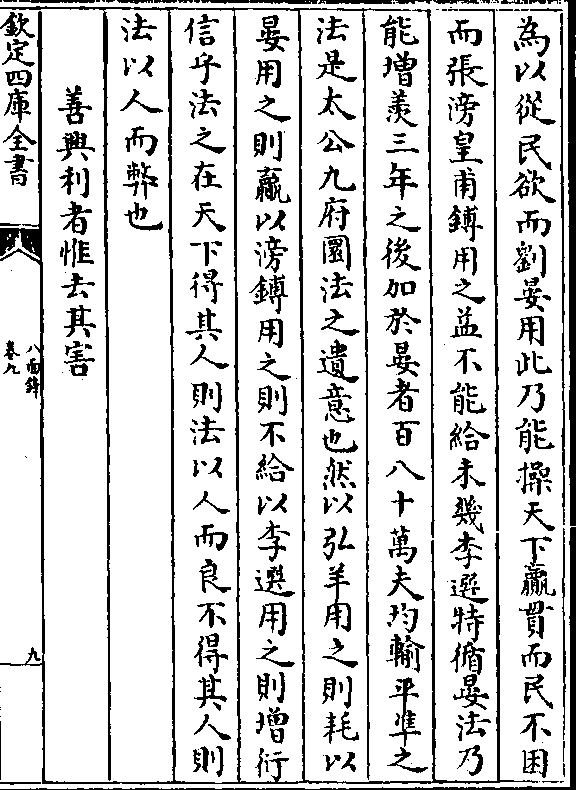 為以從民欲而劉晏用此乃能操天下贏貫而民不困
而張滂皇甫鎛用之益不能給未幾李選特循晏法乃
能增羨三年之後加於晏者百八十萬夫均輸平準之
法是太公九府圜法之遺意也然以弘羊用之則耗以
晏用之則贏以滂鎛用之則不給以李選用之則增衍
信乎法之在天下得其人則法以人而良不得其人則
法以人而弊也
善興利者惟去其害
欽定四庫全書
八面鋒
卷九
九